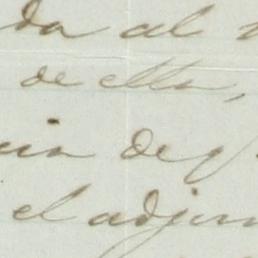 da al
de ella,
cia de
el adjun